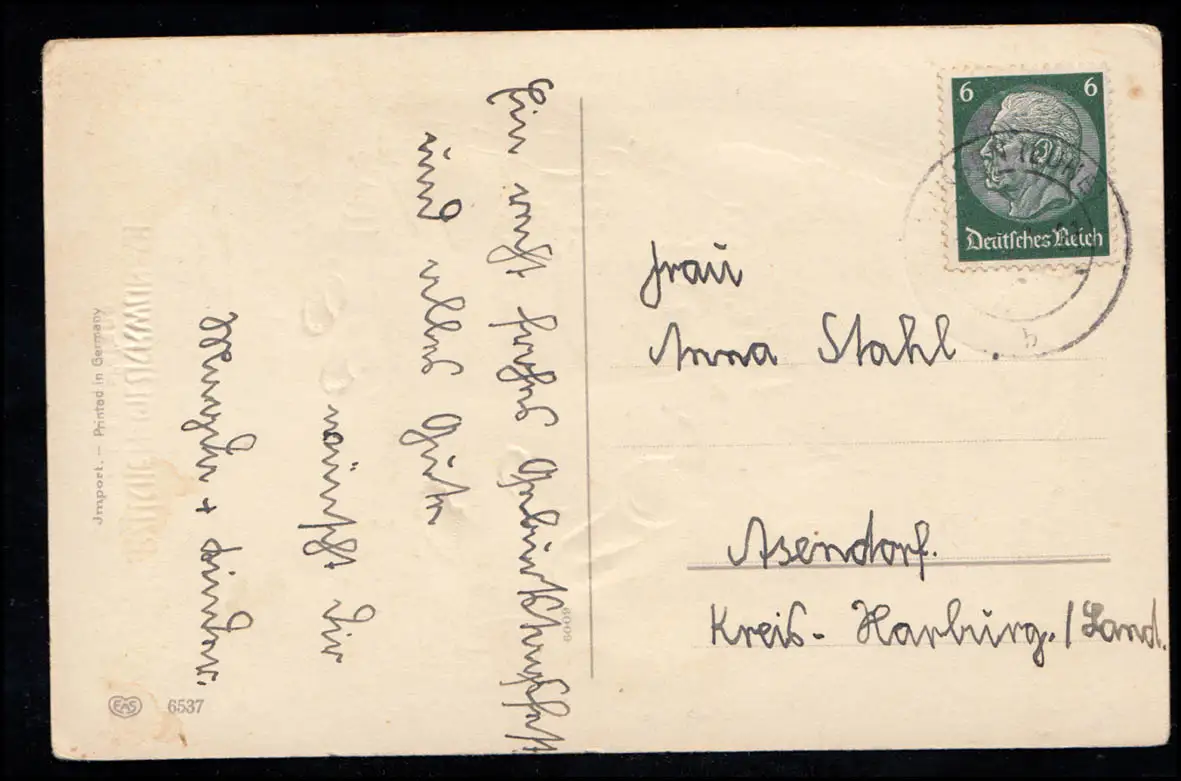 Ein recht frohes Geburtstagsfest
und alles Gute
wünscht Dir
+ Kinder.
Jmport. — Printed in Germany
EAS 6537
6009
6 6
Deutsches Reich
WINSEN (LUHE)
b
Frau
Anna Stahl.
Asendorf.
Kreis- Harburg./Land.